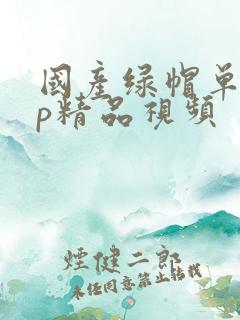 國產綠帽單
p精品視頻
煙健二郎
未任同意禁止轉載